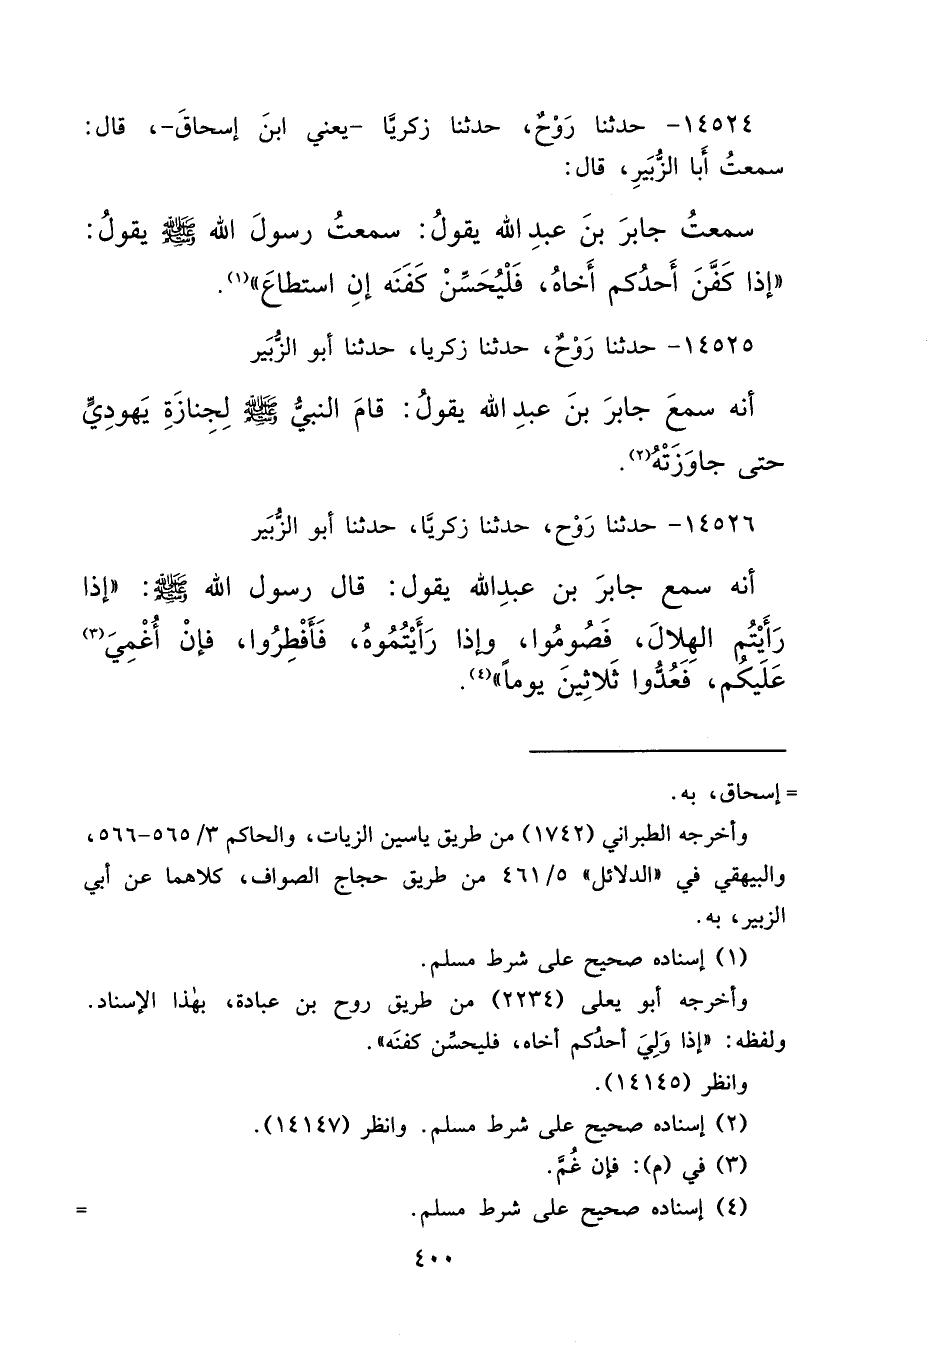 ١٤٥٢٤- حدثنا رَوْحٌ، حدثنا زكريَّا -يعني ابنَ إسحاقَ-، قال:
سمعتُ أَبا الزُّبَيرِ، قال:
سمعتُ جابرَ بنَ عبدِ الله يقولُ: سمعتُ رسولَ الله ﷺ يقولُ:
«إذا كَفَّنَ أَحدُكم أَخاهُ، فَلْيُحَسِّنْ كَفَنَه إنِ استطاعَ»(١).
١٤٥٢٥- حدثنا رَوْحٌ، حدثنا زكريا، حدثنا أبو الزُّبَير
أنه سمعَ جابرَ بنَ عبدِ الله يقولُ: قامَ النبيُّ ﷺ لِجِنازَةِ يَهودِيٍّ
حتى جاوَزَتْهُ(٢).
١٤٥٢٦- حدثنا رَوْح، حدثنا زكريَّا، حدثنا أبو الزُّبَير
أنه سمع جابرَ بن عبدِالله يقول: قال رسول الله ﷺ: «إذا
رَأَيْتُم الهِلالَ، فَصُومُوا، وإذا رَأَيْتُمُوهُ، فَأَفْطِرُوا، فإنْ أُغْمِيَ(٣)
عَلَيكُم، فَعُدُّوا ثَلاثِينَ يوماً»(٤).
= إسحاق، به.
وأخرجه الطبراني (١٧٤٢) من طريق ياسين الزيات، والحاكم ٣/ ٥٦٥-٥٦٦،
والبيهقي في «الدلائل» ٥/ ٤٦١ من طريق حجاج الصواف، كلاهما عن أبي
الزبير، به.
(١) إسناده صحيح على شرط مسلم.
وأخرجه أبو يعلى (٢٢٣٤) من طريق روح بن عبادة، بهٰذا الإسناد.
ولفظه: «إذا وَلِيَ أحدُكم أخاه، فليحسِّن كفنَه».
وانظر (١٤١٤٥).
(٢) إسناده صحيح على شرط مسلم. وانظر (١٤١٤٧).
(٣) في (م): فإن غُمَّ.
(٤) إسناده صحيح على شرط مسلم. =
٤٠٠